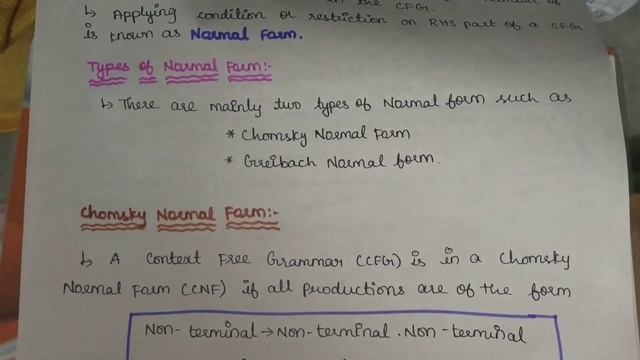 in the CFG.
↳ Applying condition or restriction on RHS part of a CFG
is known as Normal Form.
Types of Normal Form:-
↳ There are mainly two types of Normal form such as
* Chomsky Normal Form
* Greibach Normal form.
Chomsky Normal Form:-
↳ A Context Free Grammar (CFG) is in a Chomsky
Normal Form (CNF) if all productions are of the form
Non-terminal → Non-terminal . Non-terminal